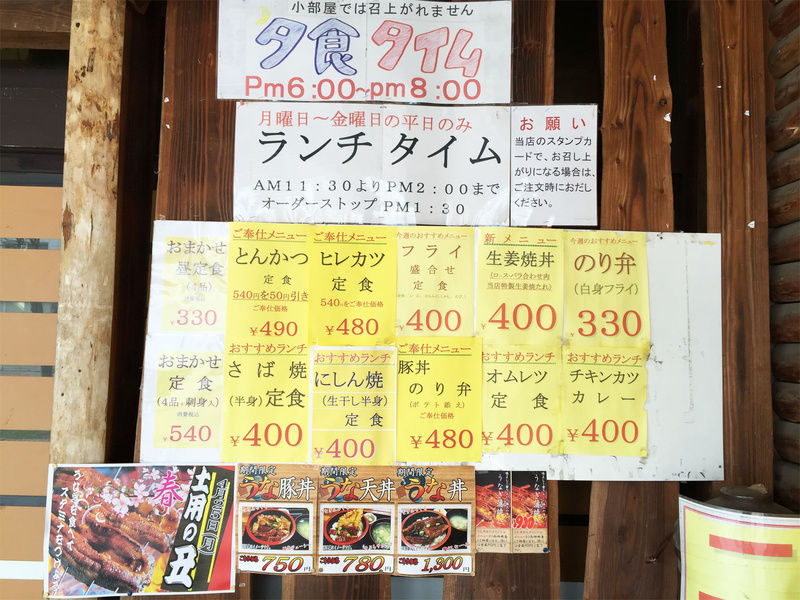 小部屋では召上がれません
夕食タイム
Pm6:00~pm8:00
月曜日〜金曜日の平日のみ
ランチ タイム
AM11:30よりPM2:00まで
オーダーストップ PM1:30
お願い
当店のスタンプカ
ードで、お召し上
がりになる場合は、
ご注文時におだし
ください。
おまかせ
昼定食
(4品)
¥330
ご奉仕メニュー
とんかつ
定食
540円を50円引き
ご奉仕価格
¥490
ご奉仕メニュー
ヒレカツ
定食
540円をご奉仕価格
¥480
今週のおすすめメニュー
フライ
盛合せ
定食
¥400
新メニュー
生姜焼丼
(ロース・バラ合わせ肉
当店特製生姜焼たれ)
¥400
今週のおすすめメニュー
のり弁
(白身フライ)
¥330
おまかせ
定食
(4品+刺身入)
消費税込
¥540
おすすめランチ
さば焼
(半身)定食
¥400
おすすめランチ
にしん焼
(生干し半身)
定食
¥400
ご奉仕メニュー
豚丼
のり弁
(ポテト添え)
ご奉仕価格
¥480
おすすめランチ
オムレツ
定食
¥400
おすすめランチ
チキンカツ
カレー
¥400
春
土用の丑
期間限定
うな豚丼
750円
期間限定
うな天丼
780円
期間限定
うな丼
1,300円